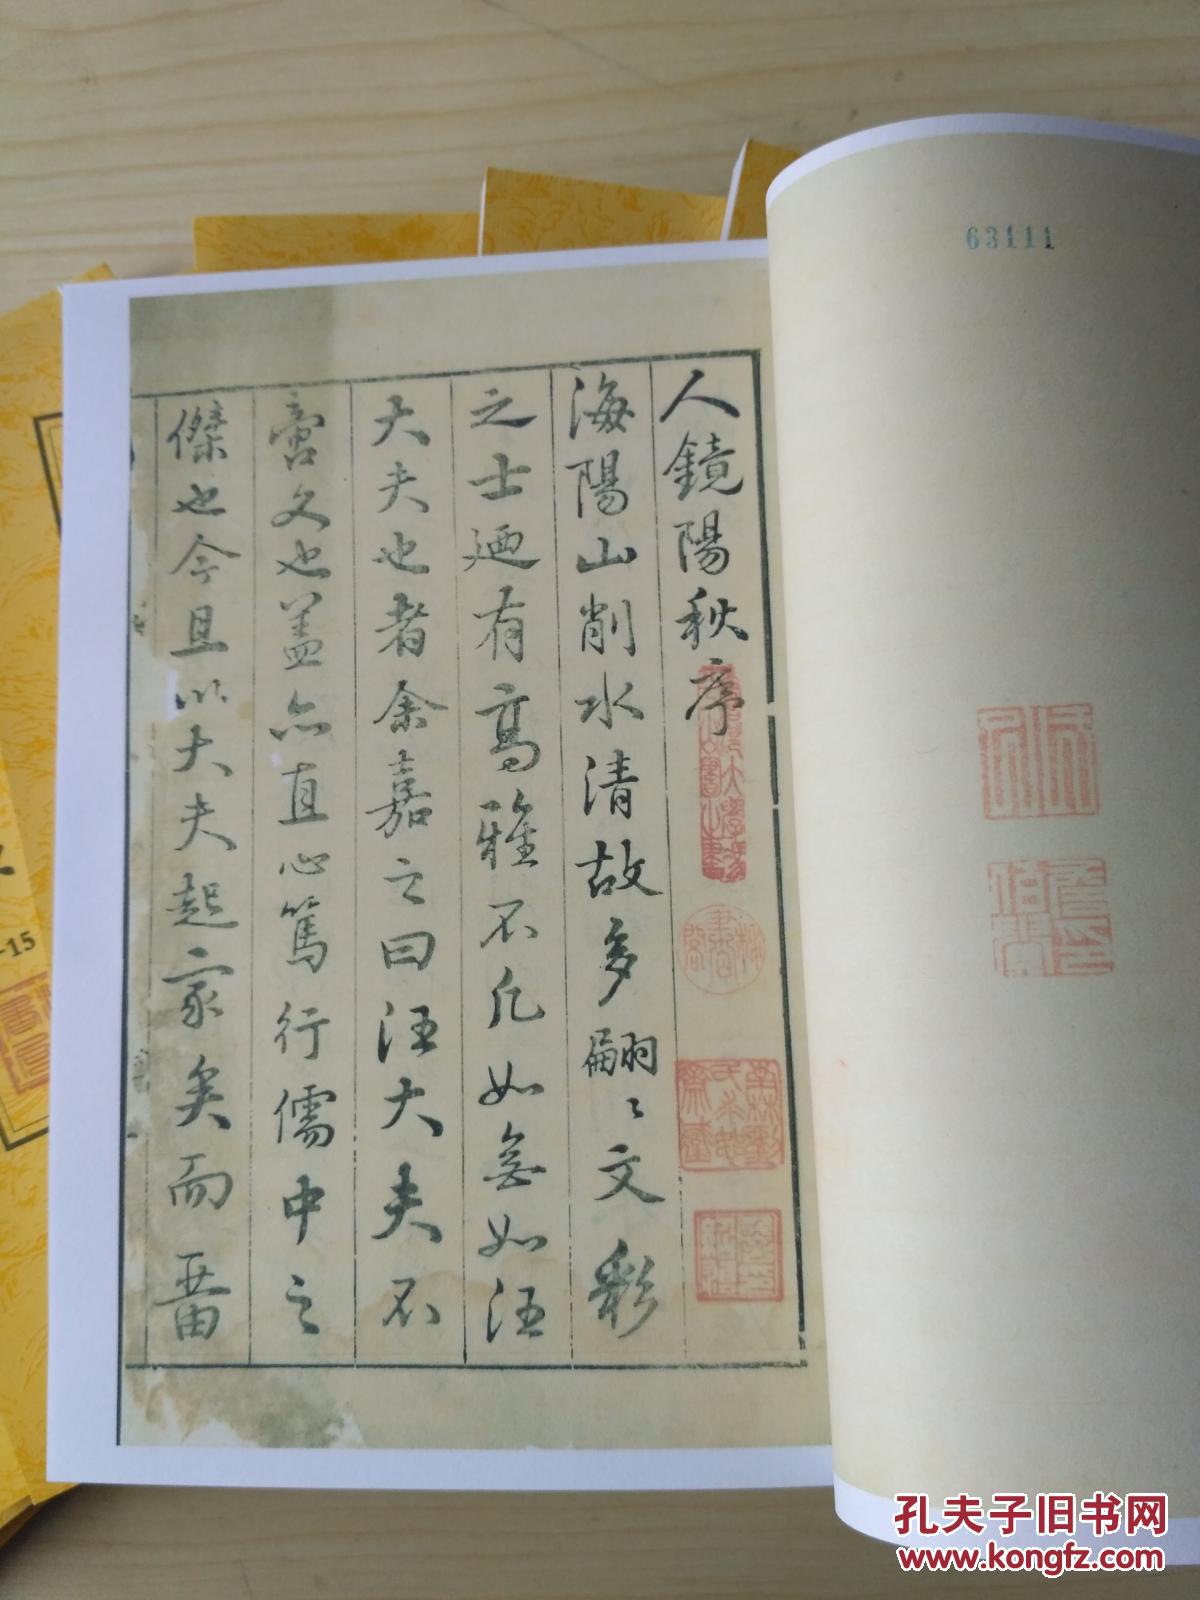 63111
人鏡陽秋序
海陽山削水清故多翩〻文彩
之士廼有高雅不凡如無如汪
大夫也者余嘉之曰汪大夫不
啻文也盖亦直心篤行儒中之
傑也今且以大夫起家矣而畱
-15
孔夫子旧书网
www.kongfz.com